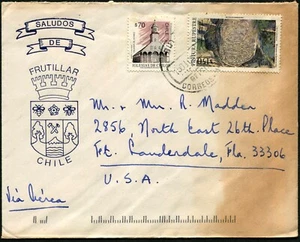 SALUDOS
DE
FRUTILLAR
CHILE
$70
CORREOS
Mr. + Mrs. R. Madden
2856, North East 26th. Place
Ft. Lauderdale, Fla. 33306
U.S.A.
Vía Aérea